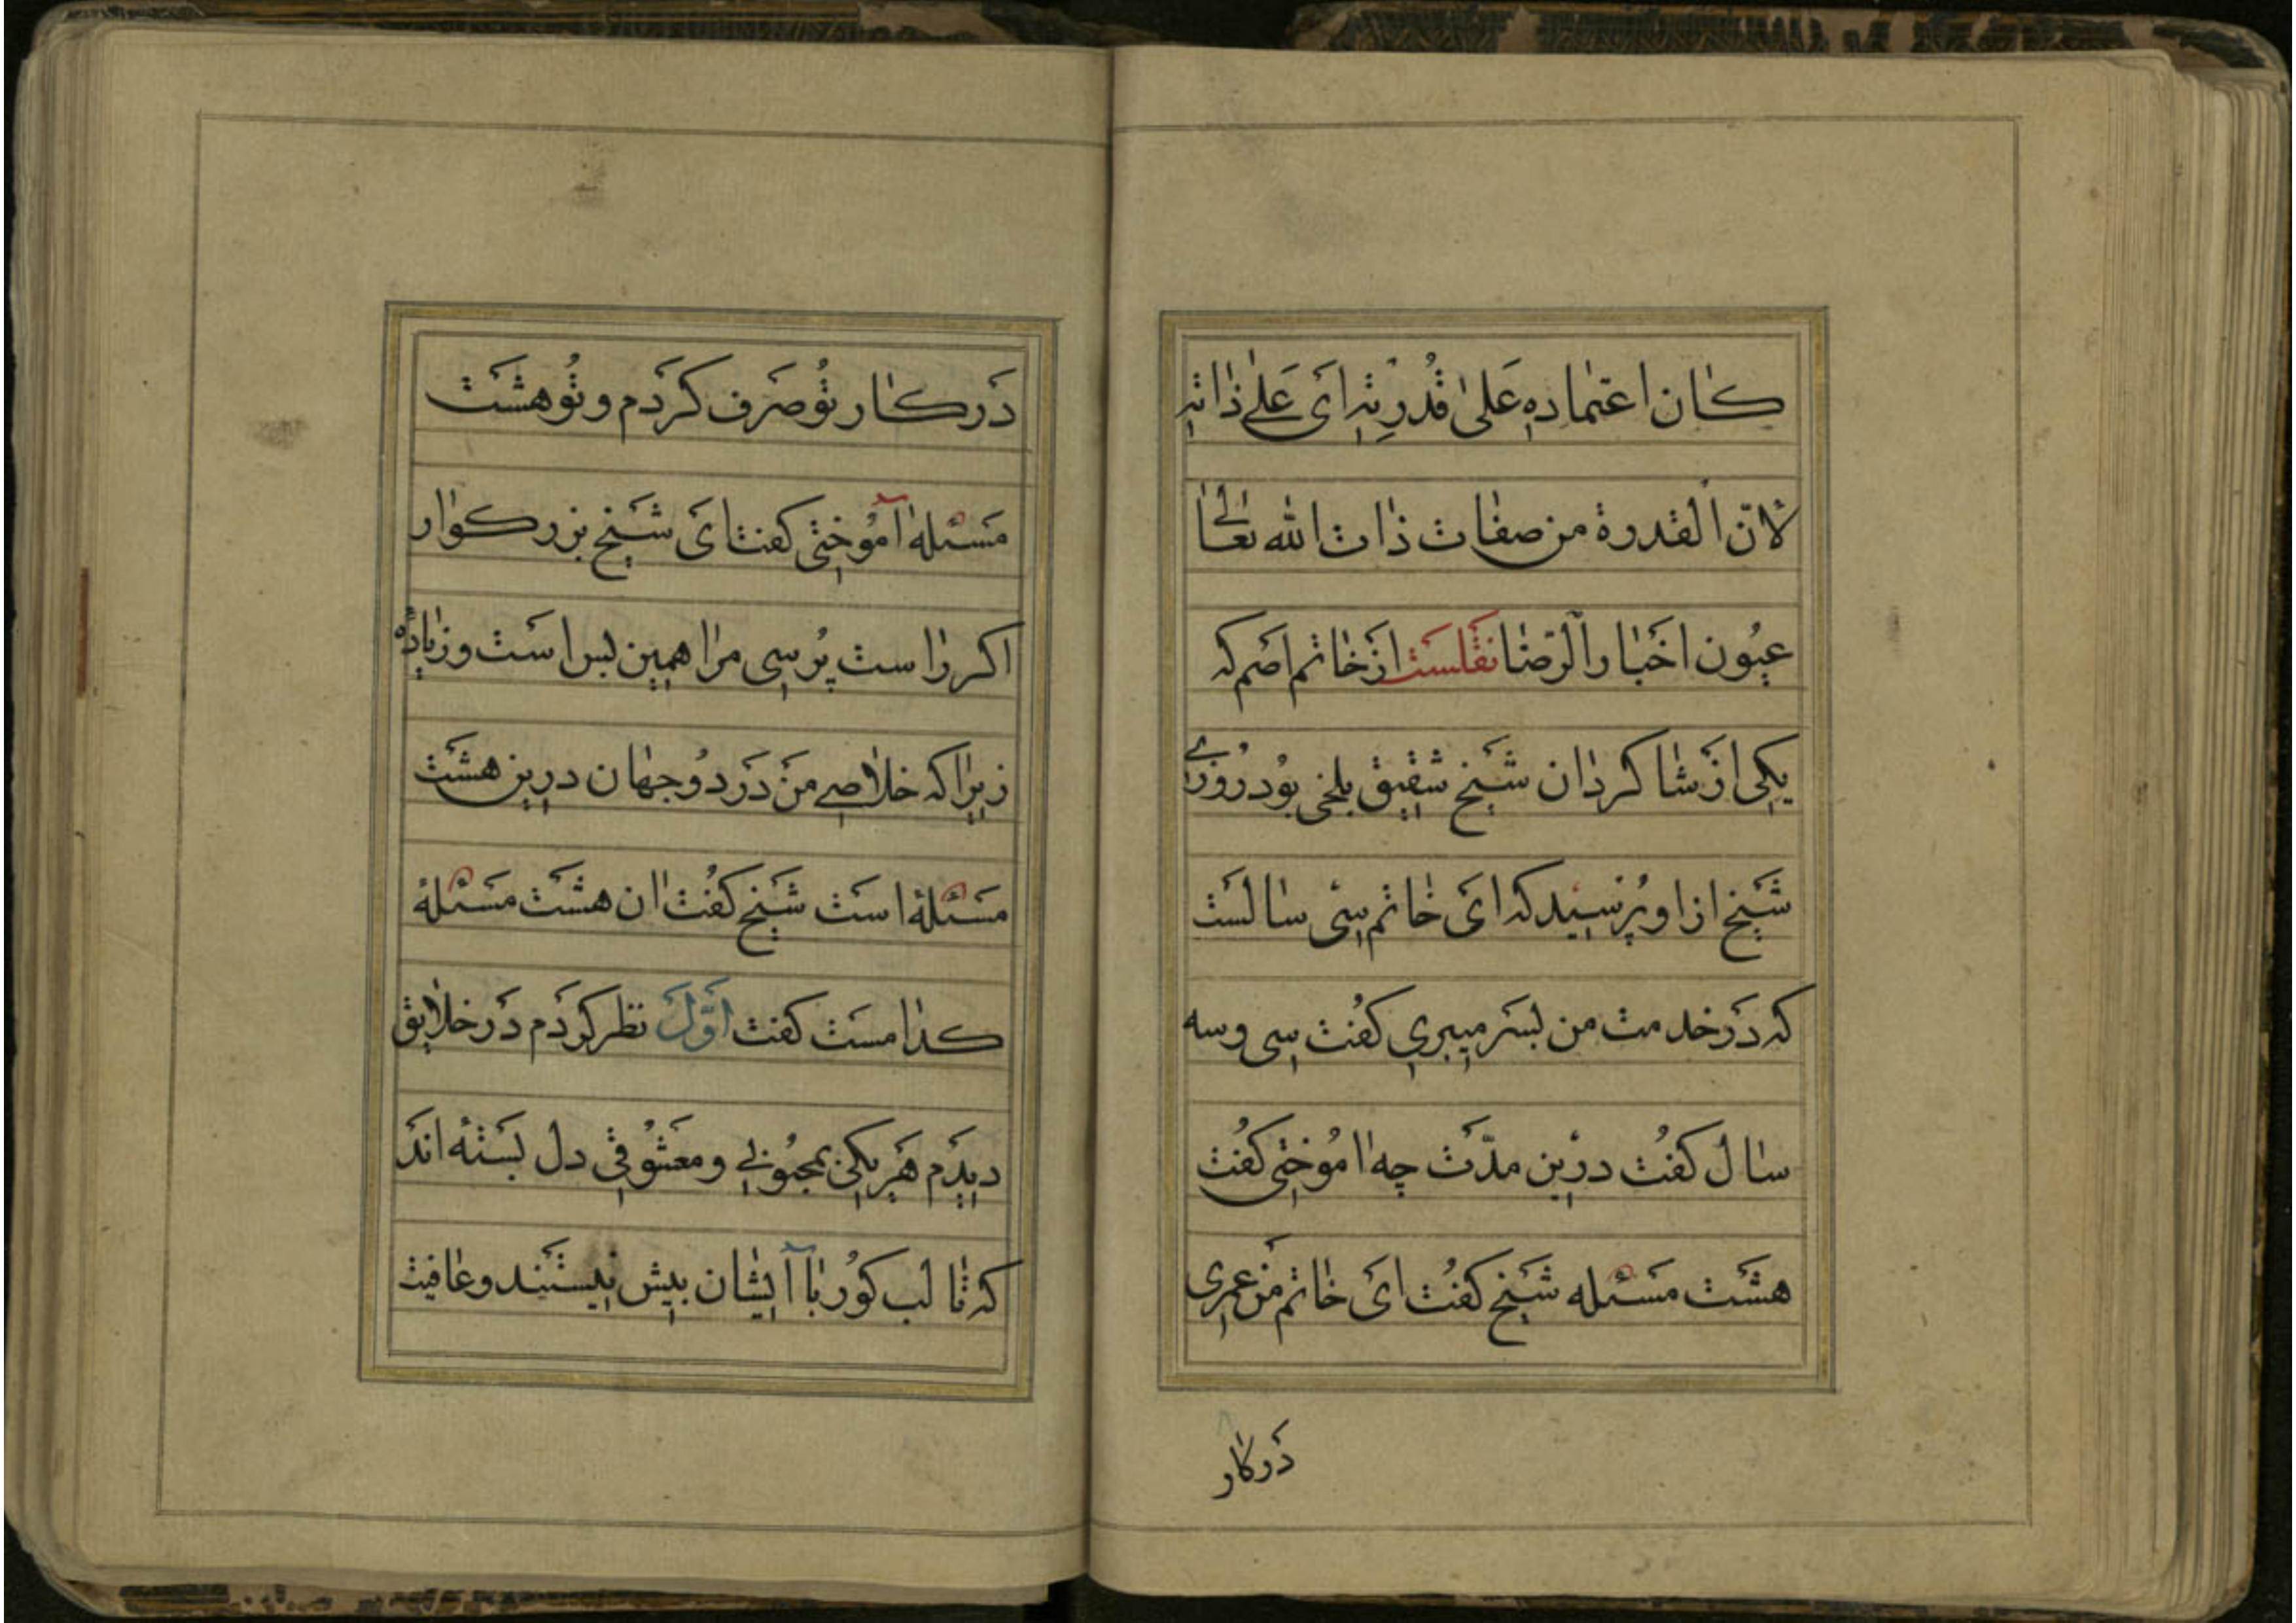 كٰان اعتمٰادهِ عَلىٰ قُدْرِتِهِ اَى عَلىٰ ذٰاتِهِ
لانّ القدرة من صفٰات ذٰات الله تعٰالىٰ
عيُون اخَبٰار الرّضٰا نقَلسَت ازَ خٰاتم اصَم كه
يكِى ازَ شٰاكردٰان شَيخ شقِيق بلخى بوُد روُزےٰ
شَيخ از او پُرسيِد كه اىَ خٰاتم سِى سٰالست
كه دَر خدمت من بسَر ميِبرىِ كفُت سِى وسه
سٰال كفُت درَين مدّت چه اٰموُختِى كفُت
هشَت مَسئله شَيخ كفُت اىَ خٰاتم منَ عمرِى
دَركٰار
دَر كٰار توُ صَرف كرَدَم و توُ هشَت
مَسئله آموُختِى كفت اىَ شَيخ بزركوٰار
اكر رٰاست پُرسِى مرٰا همِين بس استَ و زيٰادَه
زيِرٰا كه خلٰاصِے منَ دَر دوُ جهٰان درِين هشَت
مَسَئلهٔ استَ شَيخ كفُت اٰن هشَت مَسَئلهٔ
كدٰامسَت كفت اوّلَ نظر كرَدَم دَر خلٰايِق
ديِدَم هَر يكِى بمجبوُبےِ و معَشوُقىِ دل بَستَه اندَ
كه تٰا لب كوُر بٰا آيشٰان بيِش نيِستَند و عٰافيت